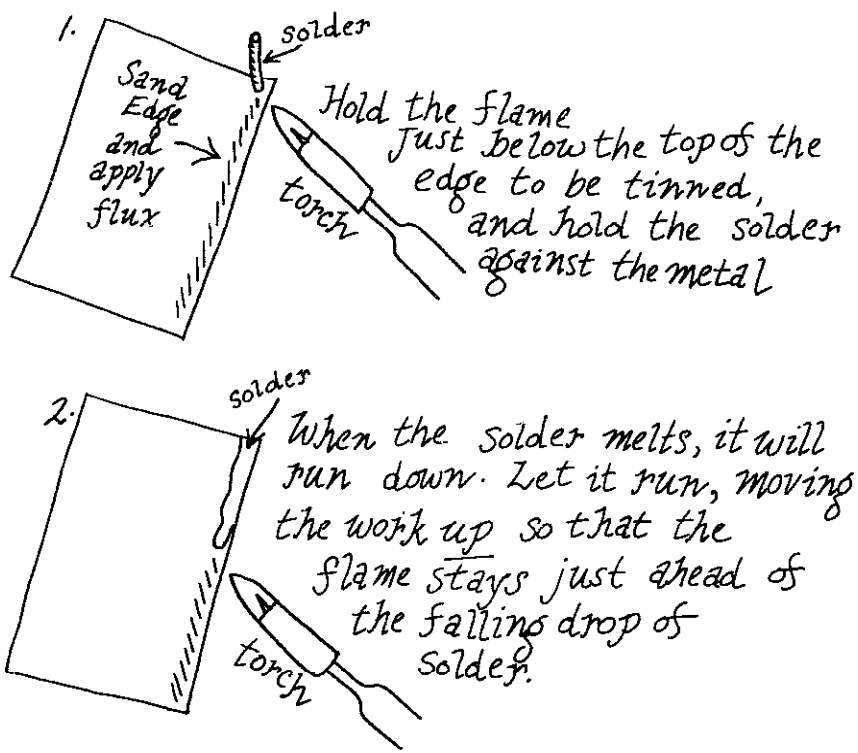 1.
solder
Sand
Edge
and
apply
flux
torch
Hold the flame
just below the top of the
edge to be tinned,
and hold the solder
against the metal
2.
solder
When the solder melts, it will
run down. Let it run, moving
the work up so that the
flame stays just ahead of
the falling drop of
solder.
torch